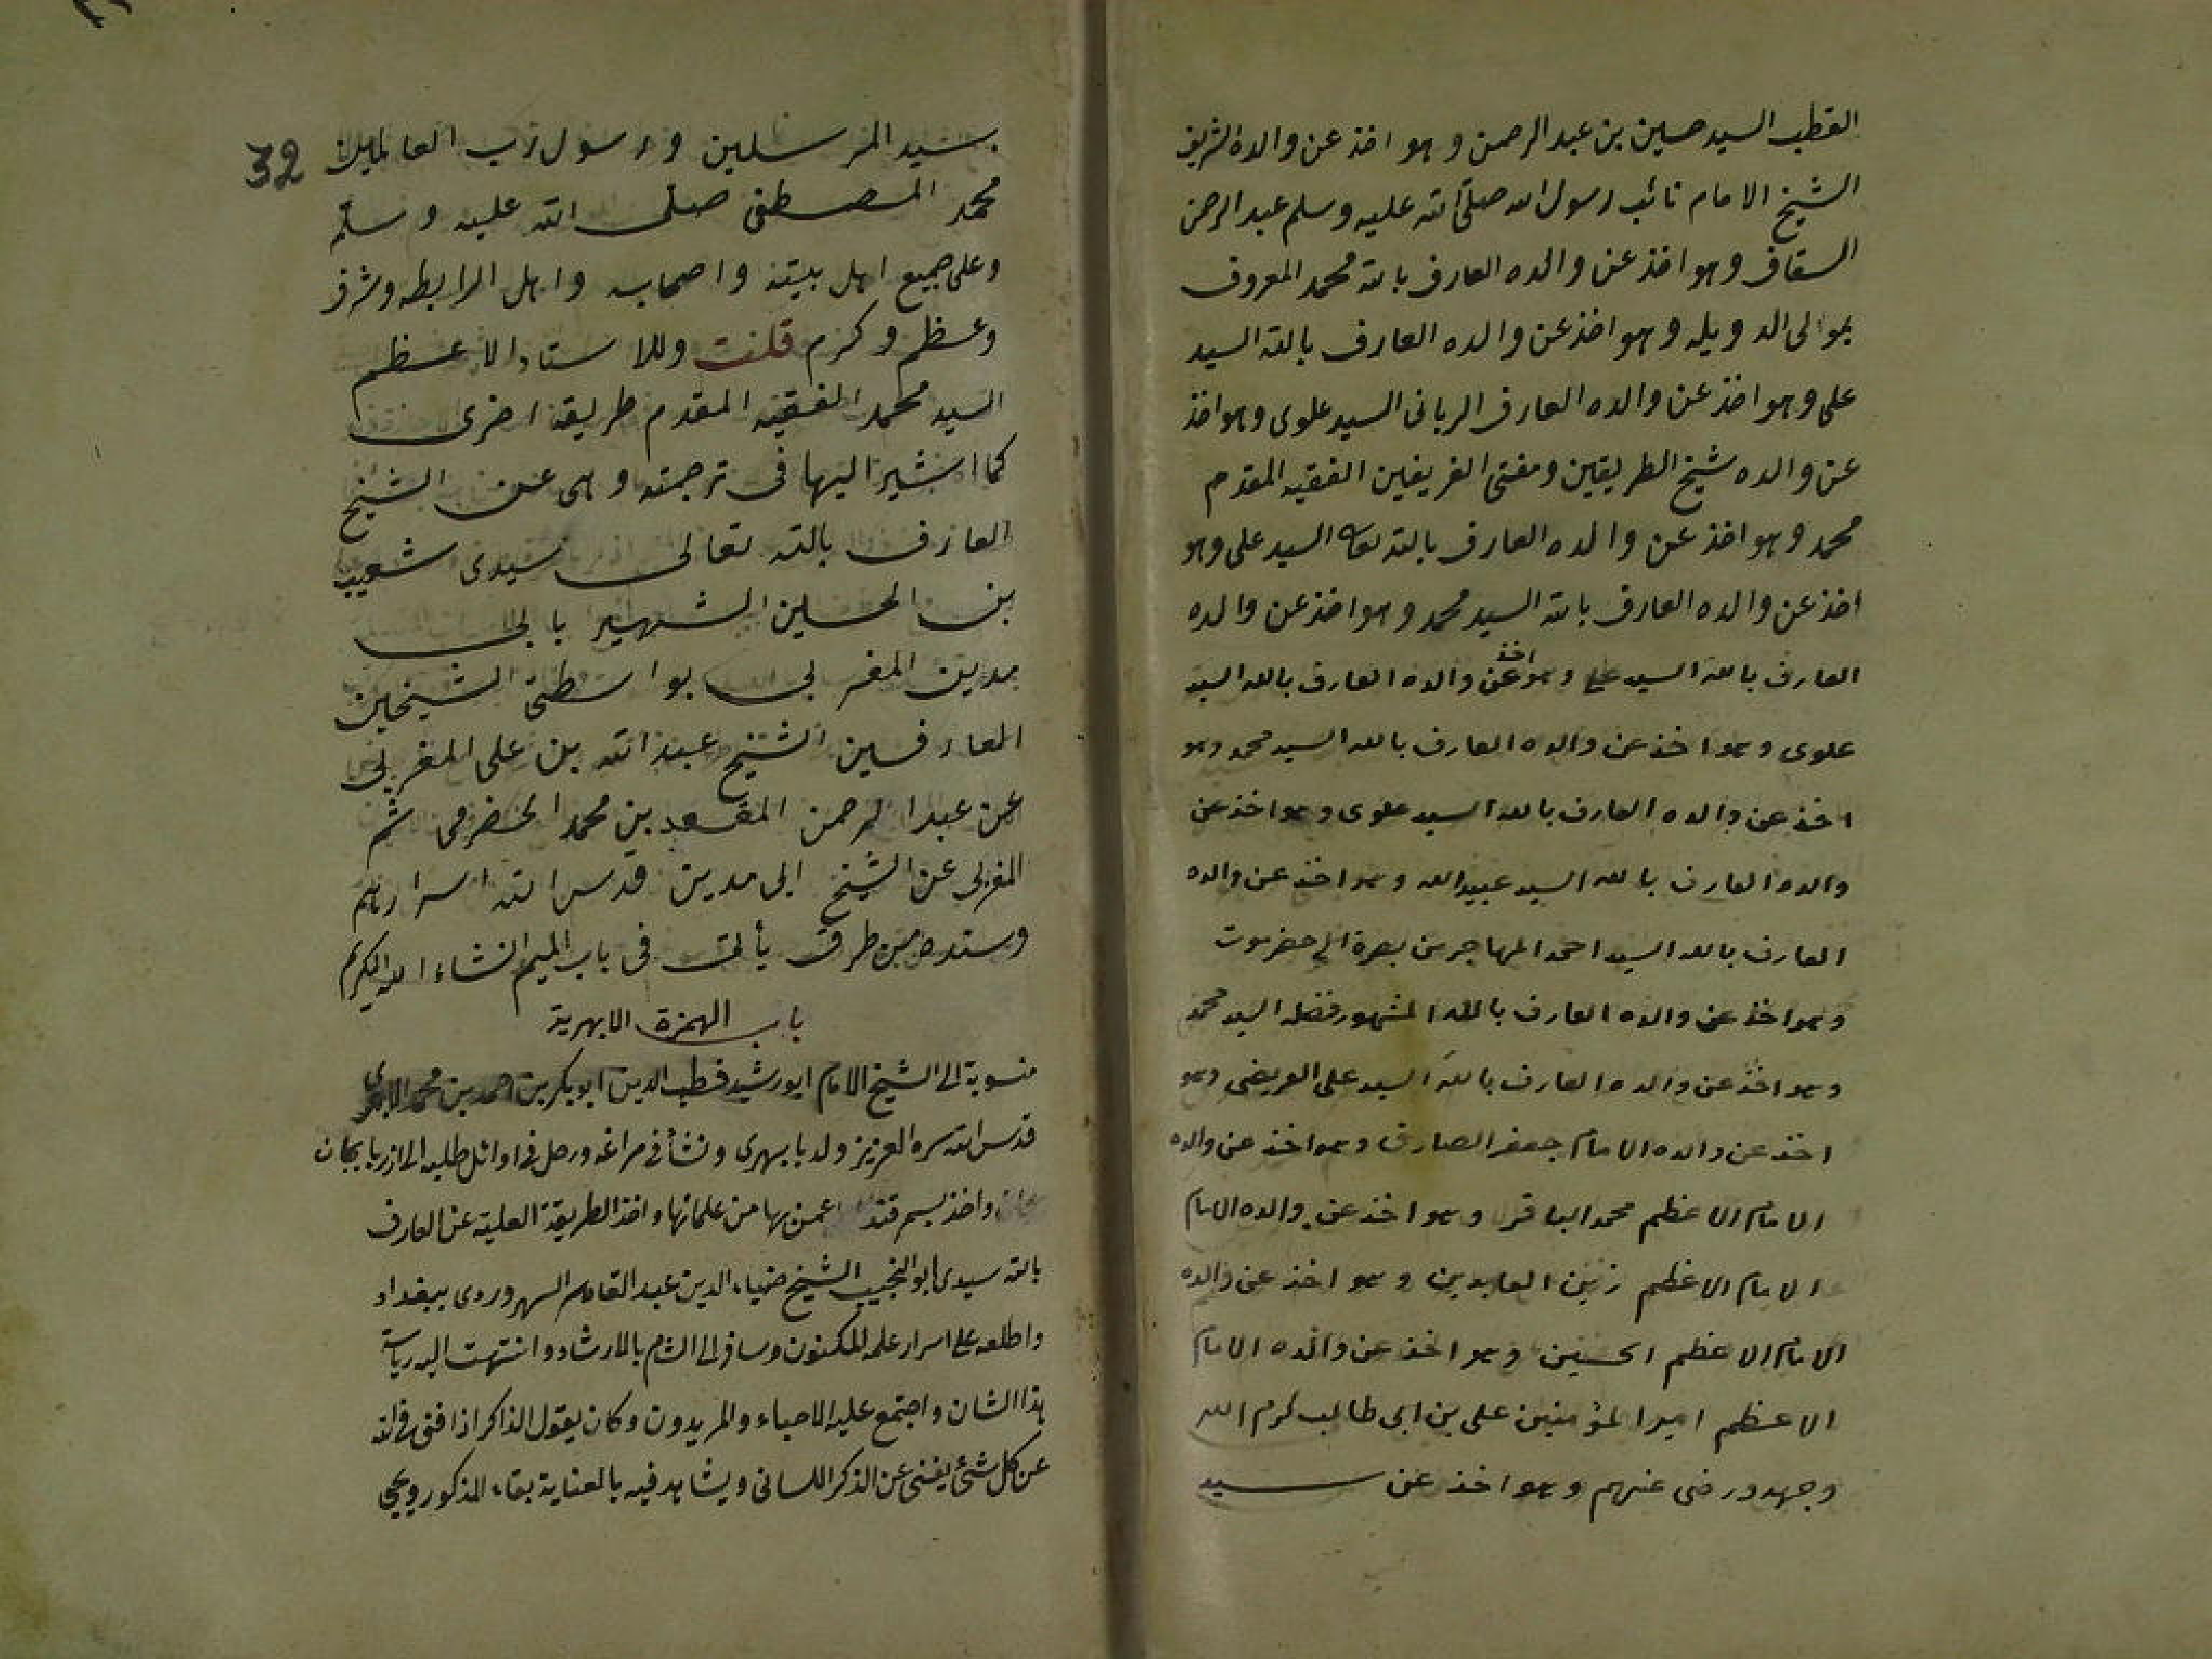 القطب السيد حسين بن عبد الرحمن وهو اخذ عن والده الشريف
الشيخ الامام نائب رسول الله صلى الله عليه وسلم عبد الرحمن
السقاف وهو اخذ عن والده العارف بالله محمد المعروف
بمولى الدويله وهو اخذ عن والده العارف بالله السيد
على وهو اخذ عن والده العارف الربانى السيد علوى وهو اخذ
عن والده شيخ الطريقين ومفتى الفريقين الفقيه المقدم
محمد وهو اخذ عن والده العارف بالله السيد على وهو
اخذ عن والده العارف بالله السيد محمد وهو اخذ عن والده
العارف بالله السيد على وهو اخذ عن والده العارف بالله السيد
علوى وهو اخذ عن والده العارف بالله السيد محمد وهو
اخذ عن والده العارف بالله السيد علوى وهو اخذ عن
والده العارف بالله السيد عبيد الله وهو اخذ عن والده
العارف بالله السيد احمد المهاجر من بصرة الى حضرموت
وهو اخذ عن والده العارف بالله المشهور فضله السيد محمد
وهو اخذ عن والده العارف بالله السيد على العريضى وهو
اخذ عن والده الامام جعفر الصادق وهو اخذ عن والده
الامام الاعظم محمد الباقر وهو اخذ عن والده الامام
الامام الاعظم زين العابدين وهو اخذ عن والده
الامام الاعظم الحسين وهو اخذ عن والده الامام
الاعظم امير المؤمنين على بن ابى طالب كرم الله
وجهه ورضى عنهم وهو اخذ عن سيد
32
سيد المرسلين ورسول رب العالمين
محمد المصطفى صلى الله عليه وسلم
وعلى جميع اهل بيته واصحابه واهل الرابطه وشرف
وعظم وكرم قلت وللاستاد الاعظم
السيد محمد الفقيه المقدم طريقة اخرى
كما اشير اليها فى ترجمته وهى عن الشيخ
العارف بالله تعالى سيدى شعيب
بن الحسين الشهير بابى
مدين المغربى بواسطتى الشيخين
العارفين الشيخ عبد الله بن على المغربى
عن عبد الرحمن المقعد بن محمد الحضرمى ثم
المغربى عن الشيخ ابى مدين قدس الله اسرارهم
طرق يأتى فى باب الميم انشاء الله الكريم
باب الهمزة الابهرية
منسوبة الى الشيخ الامام ابو رشيد قطب الدين ابو بكر بن احمد بن محمد الابهرى
قدس الله سره العزيز ولد بابهرى ونشأ فى مراغه ورحل فى اوائل طلبه الى ازربايجان
واخذ بسمرقند عمن بها من علمائها واخذ الطريقة العلية عن العارف
بالله سيدى ابو النجيب الشيخ ضياء الدين عبد القاهر السهروردى ببغداد
واطلعه على اسرار علمه المكنون وسافر الى الشام بالارشاد وانتهت اليه رياسة
هذا الشان واجتمع عليه الاحباء والمريدون وكان يقول الذاكر اذا افنى فى الله
عن كل شئ يغنى عن الذكر اللسانى ويشاهد فيه بالعناية بقاء المذكور